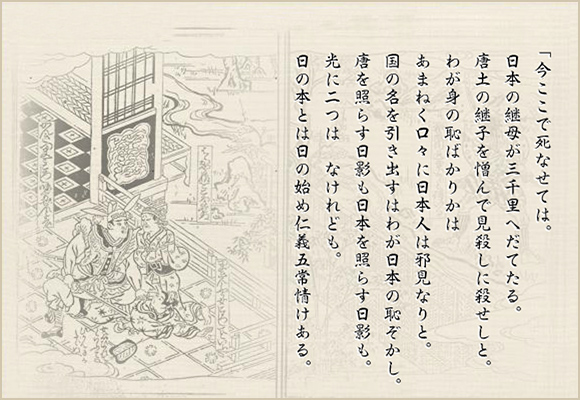 「今ここで死なせては。
日本の継母が三千里へだてたる。
唐土の継子を憎んで見殺しに殺せしと。
わが身の恥ばかりかは
あまねく口々に日本人は邪見なりと。
国の名を引き出すはわが日本の恥ぞかし。
唐を照らす日影も日本を照らす日影も。
光に二つは　なけれども。
日の本とは日の始め仁義五常情けある。